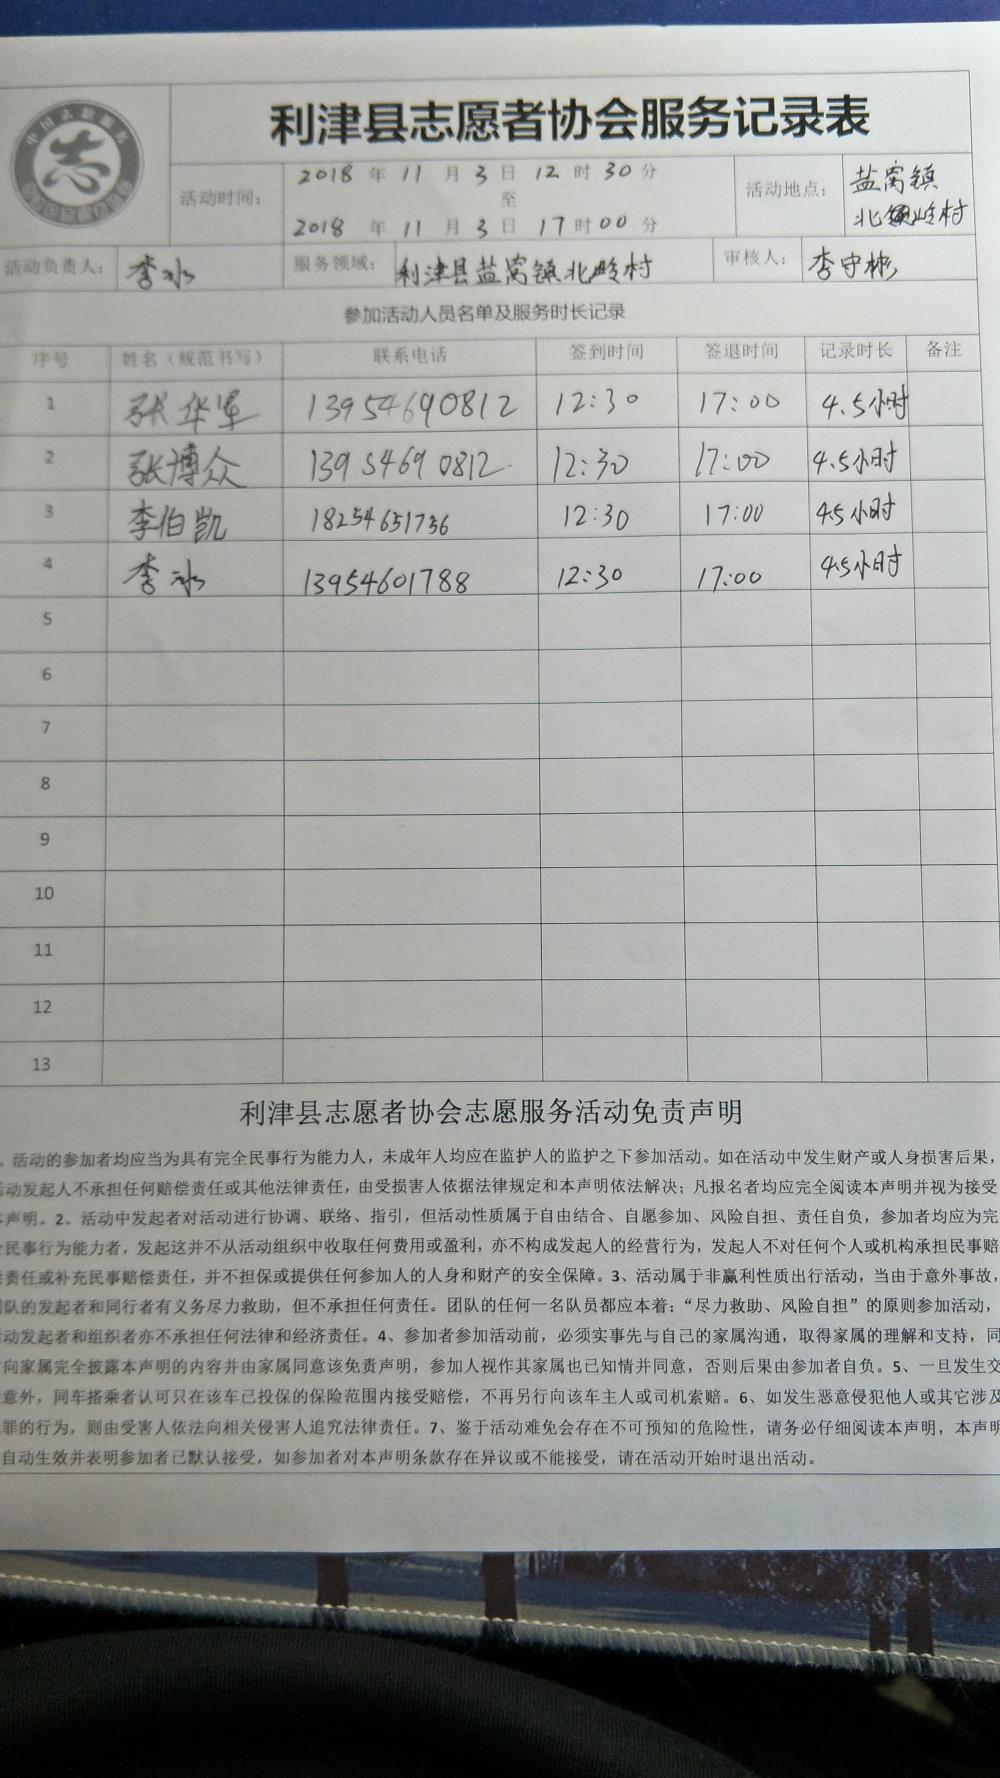 利津县志愿者协会服务记录表
活动时间：
2018 年 11 月 3 日 12 时 30 分
至
2018 年 11 月 3 日 17 时 00 分
活动地点：
盐窝镇
北岭村
活动负责人： 李冰 服务领域： 利津县盐窝镇北岭村 审核人： 李守彬
参加活动人员名单及服务时长记录
序号 姓名（规范书写） 联系电话 签到时间 签退时间 记录时长 备注
1 张华军 13954690812 12:30 17:00 4.5小时
2 张博众 13954690812 12:30 17:00 4.5小时
3 李伯凯 18254651736 12:30 17:00 4.5小时
4 李冰 13954601788 12:30 17:00 4.5小时
5
6
7
8
9
10
11
12
13
利津县志愿者协会志愿服务活动免责声明
、活动的参加者均应当为具有完全民事行为能力人，未成年人均应在监护人的监护之下参加活动。如在活动中发生财产或人身损害后果，
活动发起人不承担任何赔偿责任或其他法律责任，由受损害人依据法律规定和本声明依法解决；凡报名者均应完全阅读本声明并视为接受
本声明。2、活动中发起者对活动进行协调、联络、指引，但活动性质属于自由结合、自愿参加、风险自担、责任自负，参加者均应为完
全民事行为能力者，发起这并不从活动组织中收取任何费用或盈利，亦不构成发起人的经营行为，发起人不对任何个人或机构承担民事赔
偿责任或补充民事赔偿责任，并不担保或提供任何参加人的人身和财产的安全保障。3、活动属于非赢利性质出行活动，当由于意外事故，
团队的发起者和同行者有义务尽力救助，但不承担任何责任。团队的任何一名队员都应本着：“尽力救助、风险自担”的原则参加活动，
活动发起者和组织者亦不承担任何法律和经济责任。4、参加者参加活动前，必须实事先与自己的家属沟通，取得家属的理解和支持，同
向家属完全披露本声明的内容并由家属同意该免责声明，参加人视作其家属也已知情并同意，否则后果由参加者自负。5、一旦发生交
意外，同车搭乘者认可只在该车已投保的保险范围内接受赔偿，不再另行向该车主人或司机索赔。6、如发生恶意侵犯他人或其它涉及
罪的行为，则由受害人依法向相关侵害人追究法律责任。7、鉴于活动难免会存在不可预知的危险性，请务必仔细阅读本声明，本声明
自动生效并表明参加者已默认接受，如参加者对本声明条款存在异议或不能接受，请在活动开始时退出活动。